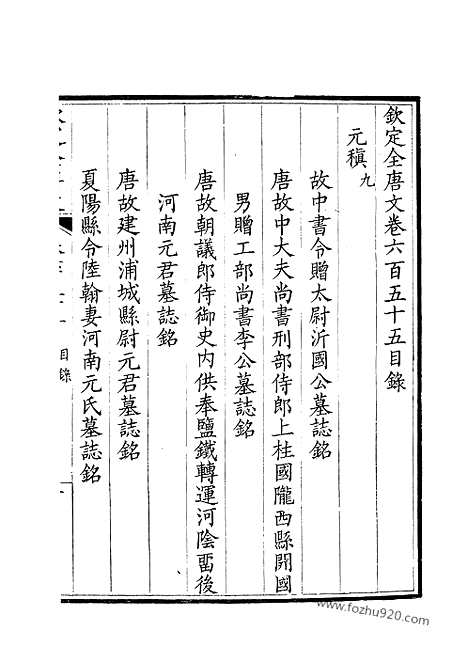 欽定全唐文卷六百五十五目錄
元稹九
故中書令贈太尉沂國公墓誌銘
唐故中大夫尚書刑部侍郎上柱國隴西縣開國
男贈工部尚書李公墓誌銘
唐故朝議郎侍御史内供奉鹽鐵轉運河陰畱後
河南元君墓誌銘
唐故建州浦城縣尉元君墓誌銘
夏陽縣令陸翰妻河南元氏墓誌銘
目錄
一
www.fozhu920.com